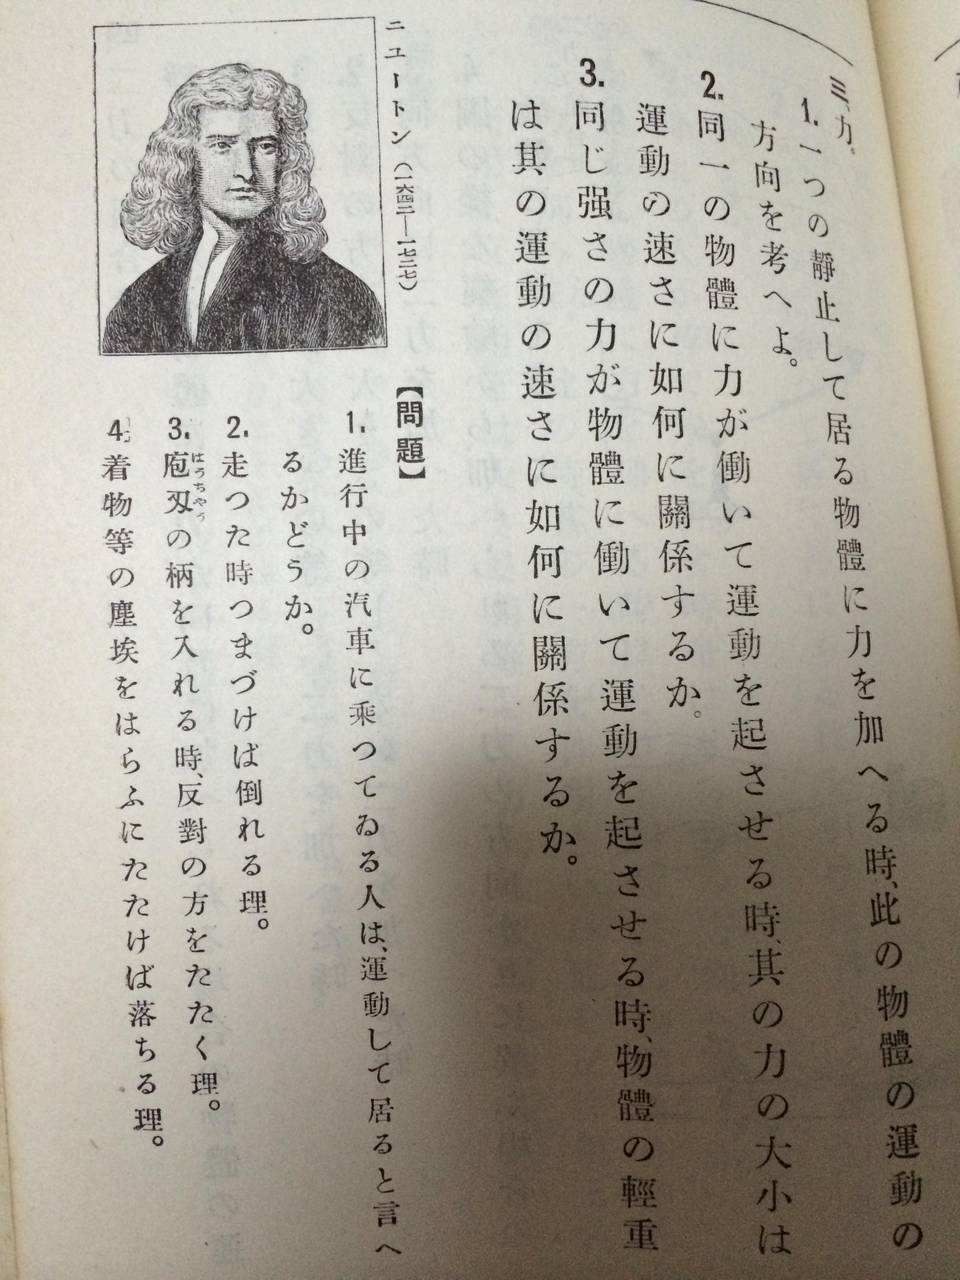 三、力。
1. 一つの靜止して居る物體に力を加へる時、此の物體の運動の
方向を考へよ。
2. 同一の物體に力が働いて運動を起させる時、其の力の大小は
運動の速さに如何に關係するか。
3. 同じ强さの力が物體に働いて運動を起させる時、物體の輕重
は其の運動の速さに如何に關係するか。
ニュートン(一六四二—一七二七)
【問題】
1. 進行中の汽車に乘つてゐる人は、運動して居ると言へ
るかどうか。
2. 走つた時つまづけば倒れる理。
3. 庖刄の柄を入れる時、反對の方をたたく理。
はうちやう
4. 着物等の塵埃をはらふにたたけば落ちる理。